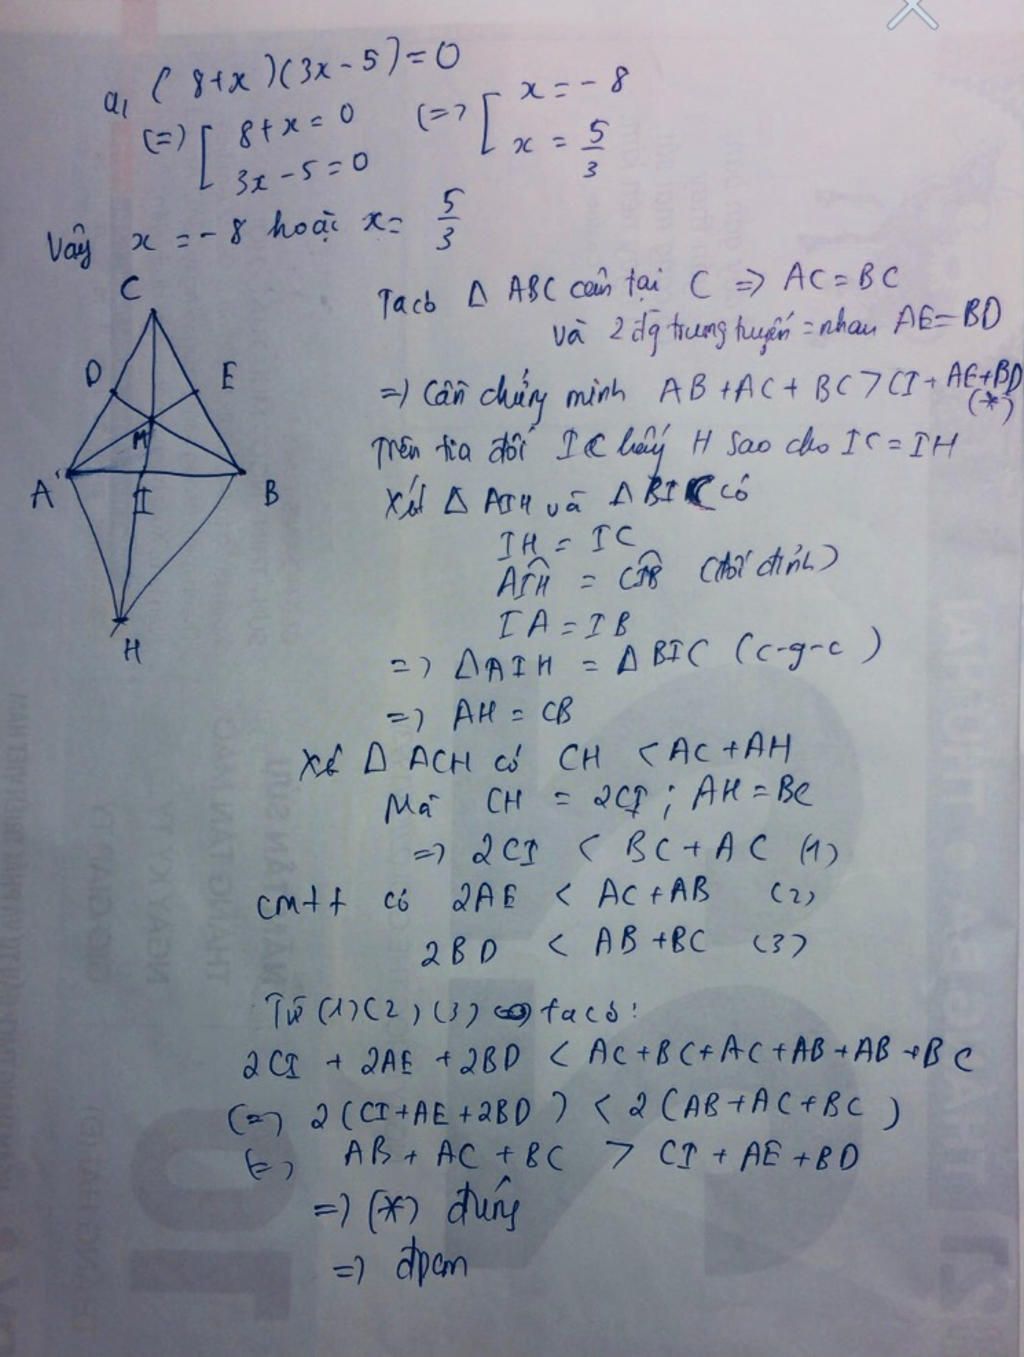 a, (8+x)(3x-5)=0
(=) [ 8+x=0 (=) [ x=-8
3x-5=0 x = 5/3
Vậy x = -8 hoặc x = 5/3
C
D E
M
A I B
H
Ta có Δ ABC cân tại C => AC = BC
và 2 đg trung tuyến = nhau AE = BD
=) Cần chứng minh AB + AC + BC > CI + AE + BD
(*)
Trên tia đối IC lấy H sao cho IC = IH
Xét Δ AIH và Δ BIC có
IH = IC
AIH = CIB (đối đỉnh)
IA = IB
=) Δ AIH = Δ BIC (c-g-c)
=) AH = CB
Xét Δ ACH có CH < AC + AH
Mà CH = 2CI ; AH = BC
=) 2CI < BC + AC (1)
cmtt có 2AE < AC + AB (2)
2BD < AB + BC (3)
Từ (1)(2)(3) ta có:
2CI + 2AE + 2BD < AC + BC + AC + AB + AB + BC
(=) 2(CI+AE+2BD) < 2(AB+AC+BC)
(=) AB + AC + BC > CI + AE + BD
=) (*) đúng
=) đpcm